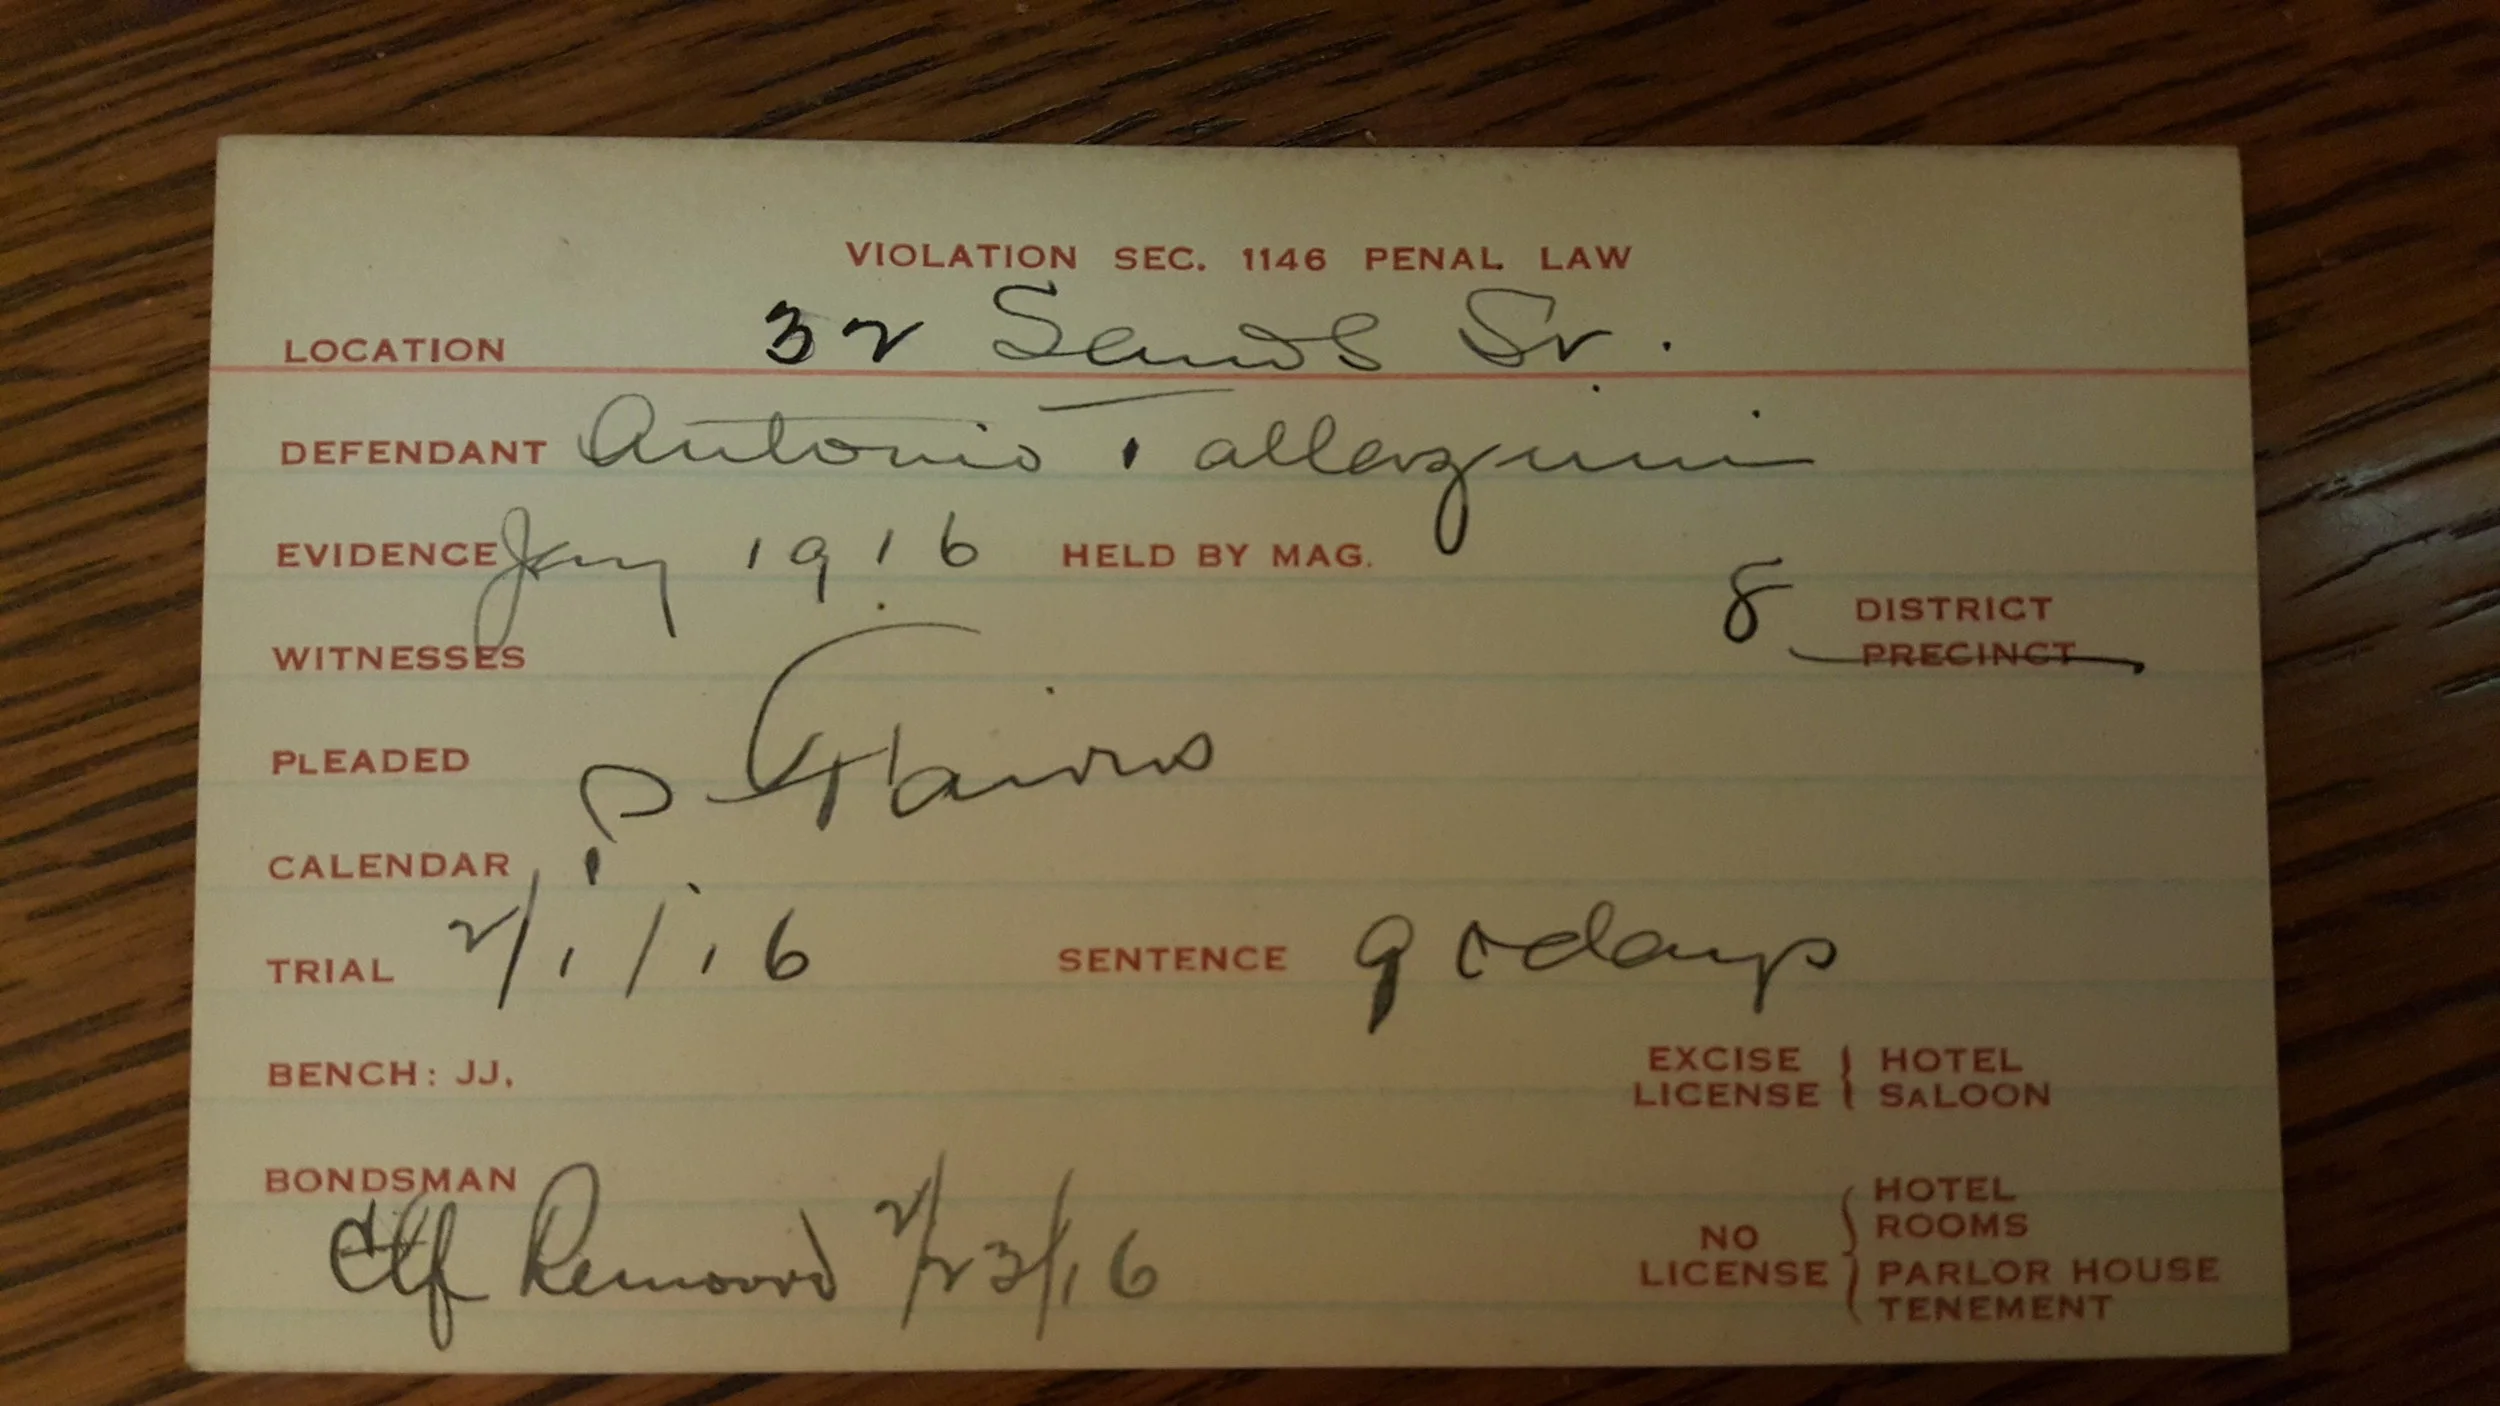 VIOLATION SEC. 1146 PENAL LAW
LOCATION 32 Sands St.
DEFENDANT Antonio Tallerzini
EVIDENCE Jany 1916 HELD BY MAG.
8 DISTRICT
WITNESSES PRECINCT
PLEADED
CALENDAR
TRIAL 2/1/16 SENTENCE 90 days
BENCH: JJ.
EXCISE LICENSE { HOTEL SALOON
BONDSMAN
NO LICENSE { HOTEL ROOMS PARLOR HOUSE TENEMENT
Removed 2/23/16